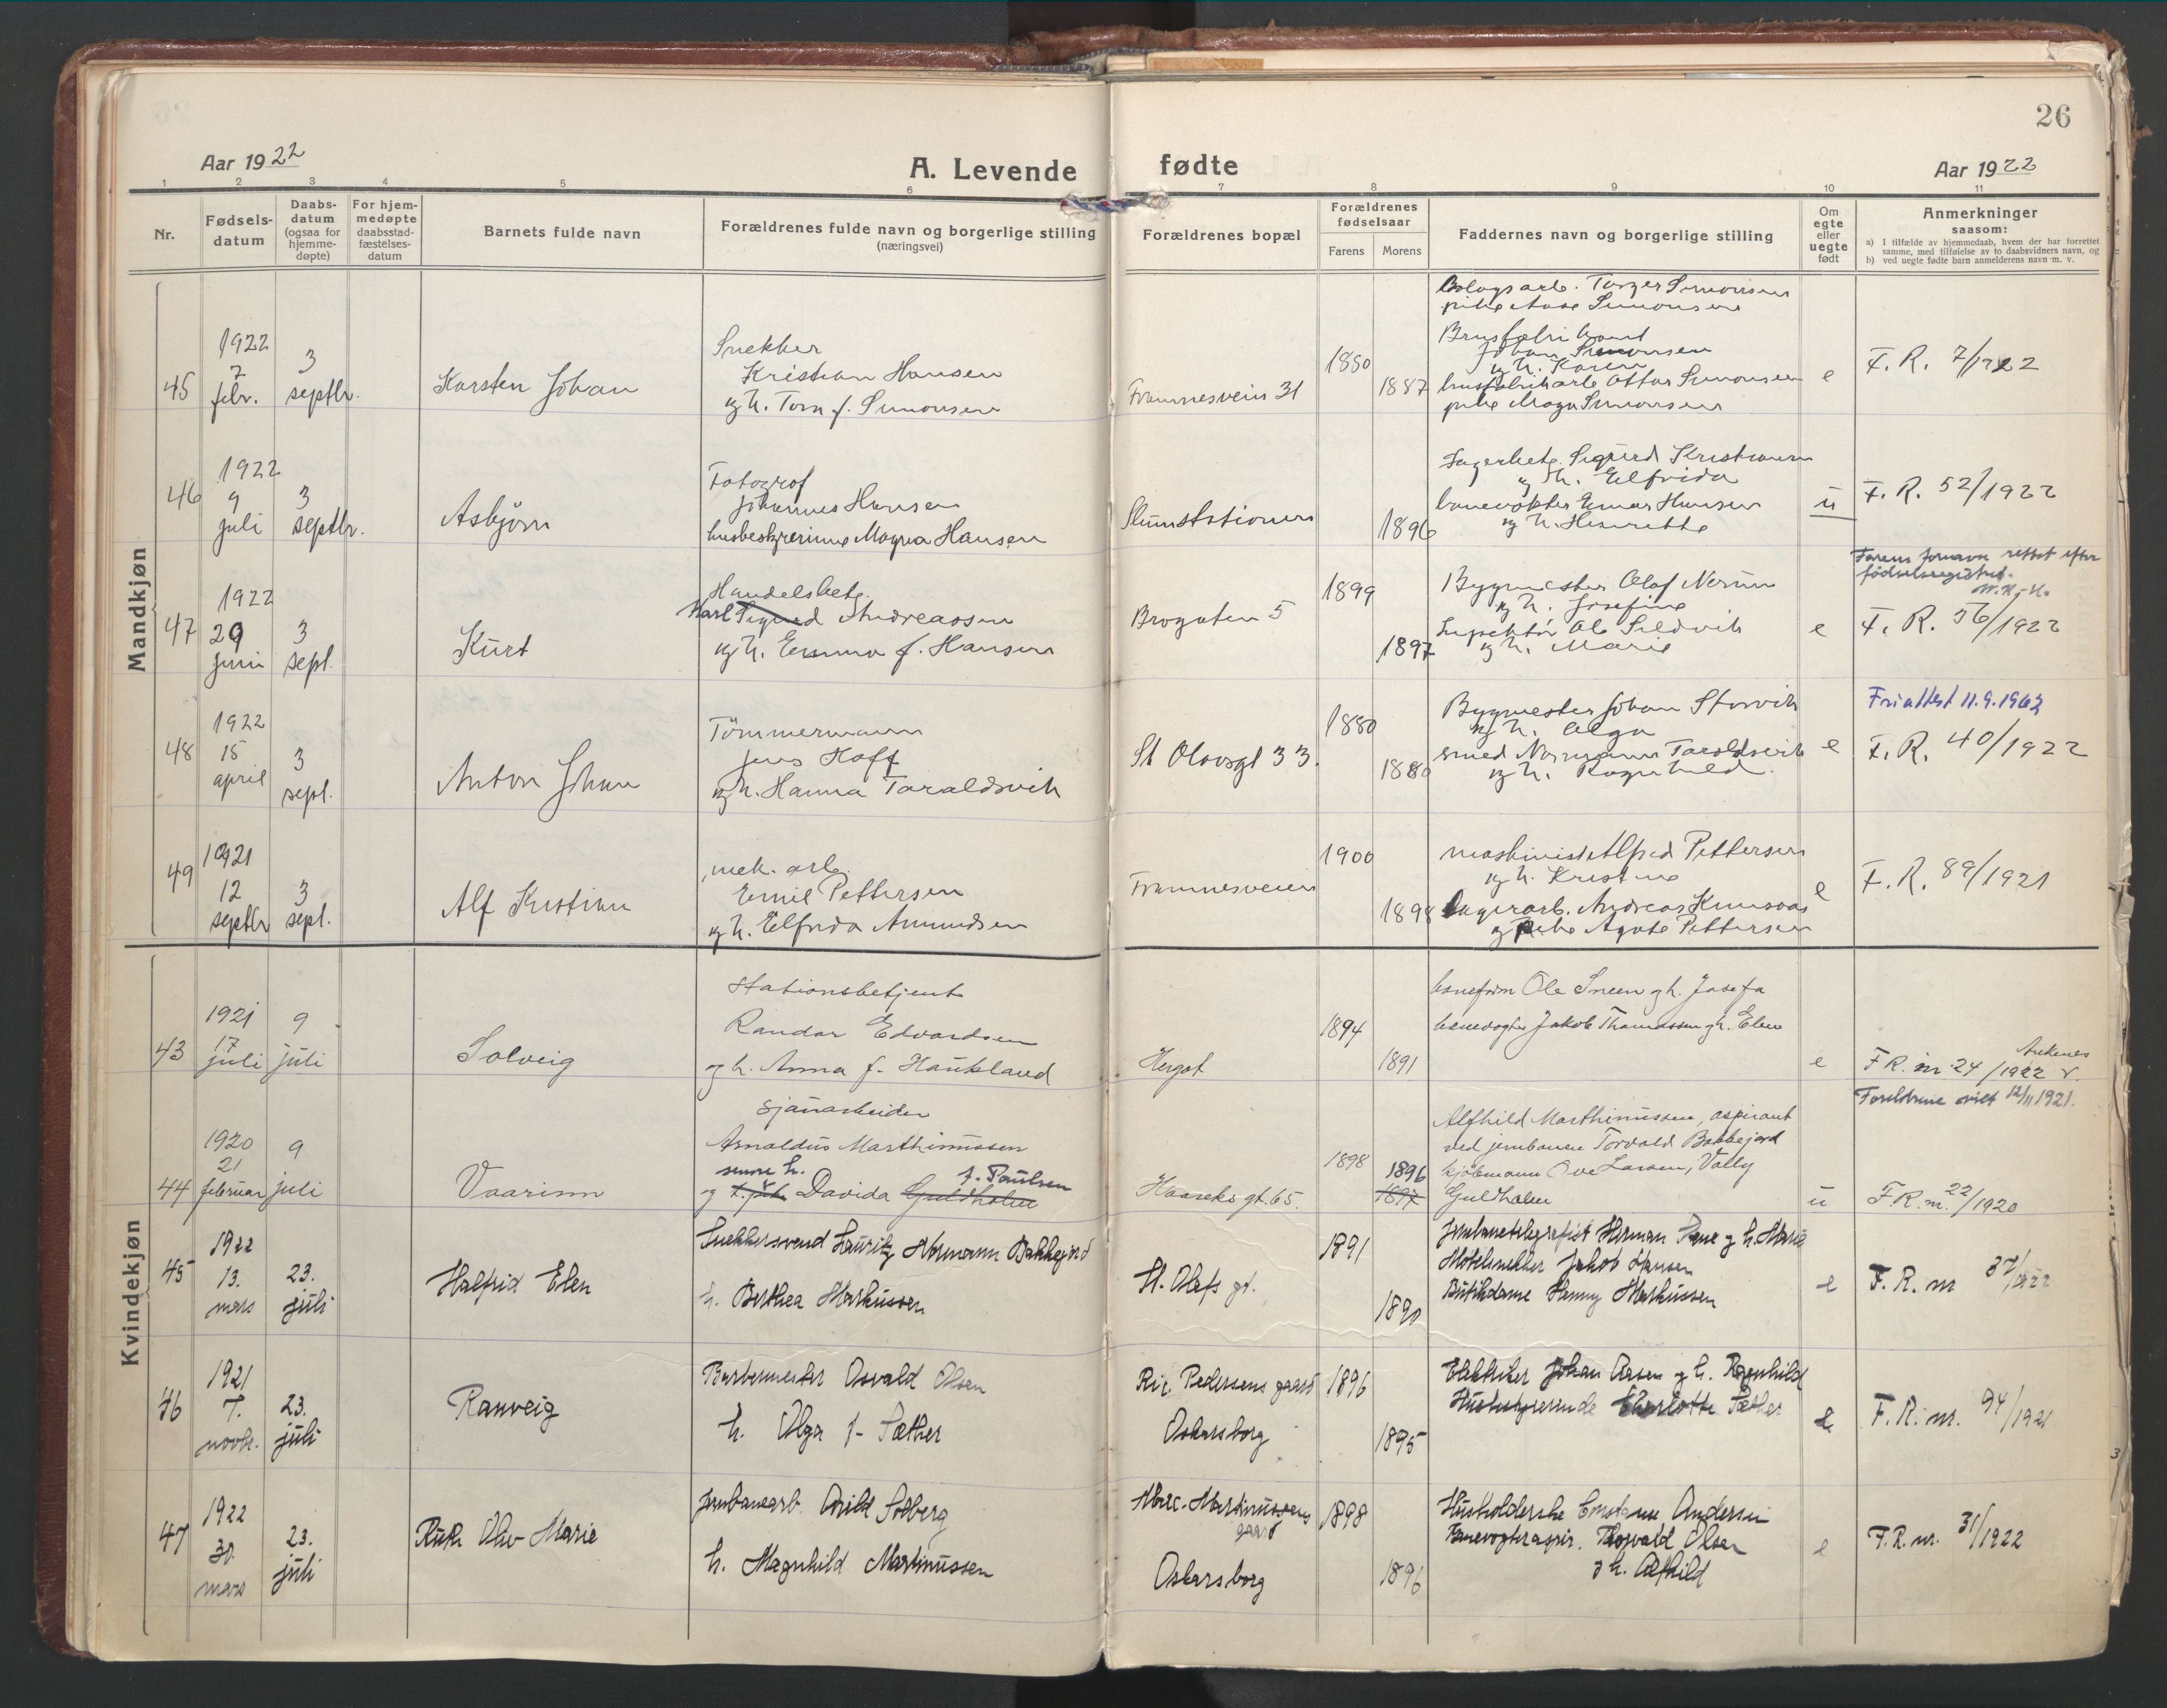 26
Aar 1922
A. Levende fødte
Aar 1922
1 2 3 4 5 6 7 8 9 10 11
Nr.
Fødsels-
datum
Daabs-
datum
(ogsaa for
hjemme-
døpte)
For hjem-
medøpte
daabsstad-
fæstelses-
datum
Barnets fulde navn
Forældrenes fulde navn og borgerlige stilling
(næringsvei)
Forældrenes bopæl
Forældrenes
fødselsaar
Farens Morens
Faddernes navn og borgerlige stilling
Om
egte
eller
uegte
født
Anmerkninger
saasom:
a) I tilfælde av hjemmedaab, hvem der har forrettet
samme, med tilføielse av to daabsvidners navn, og
b) ved uegte fødte barn anmelderens navn m. v.
Mandkjøn
45
1922
7
febr.
3
septbr.
Karsten Johan
Snekker
Kristian Hansen
og h. Tora f. Simonsen
Framnesveien 31
1880
1887
Bolagsarb. Torger Simonsen
pike Aase Simonsen
Brusfabrikant
Johan Simonsen
og h. Karen
brusfabrikarb. Ottar Simonsen
pike Magn Simonsen
e
F. R. 7/1922
46
1922
9
juli
3
septbr.
Asbjørn
Fotograf
Johannes Hansen
husbestyrerinne Magna Hansen
1896
Lagerbetj. Sigurd Kristiansen
og h. Elfrida
banevokter Einar Hansen
og h. Henrette
u
F. R. 52/1922
47
1922
29
juni
3
sept.
Kurt
Handelsbetj.
Karl Sigurd Andreassen
og h. Emma f. Hansen
Brogaten 5
1899
1897
Bygmester Olaf Nerum
og h. Josefine
Inspektør Ole Sildvik
og h. Marie
e
Farens fornavn rettet efter
fødselsregistret.
F. R. 56/1922
48
1922
15
april
3
sept.
Anton Johan
Tömmermann
Jens Hoff
og h. Hanna Taraldsvik
St Olavsgt 33.
1880
1880
Bygmester Johan Storvik
og h. Olga
smed Normann Taraldsvik
og h. Ragnhild.
e
Friattest 11.9.1962
F. R. 40/1922
49
1921
12
septbr
3
sept.
Alf Kristian
mek. arb.
Emil Pettersen
og h. Elfrida Amundsen
Framnesveien
1900
1898
maskinist Alfred Pettersen
og h. Kristine
Lagerarb. Andreas
og pike Agate Pettersen
e
F. R. 89/1921
Kvindekjøn
43
1921
17
juli
9
juli
Solveig
Stationsbetjent
Randar Edvardsen
og h. Anna f. Haukland
Hergot
1894
1891
banefrm Ole Sneen og h. Josefa
banevogter Jakob Thomassen og h. Elen
e
Ankenes
F R. nr 24/1922 v.
44
1920
21
februar
9
juli
Vaarinn
Sjauarbeider
Arnoldus Marthinussen
senere h. f. Paulsen
og Davida Guldholm
Haareks gt. 65.
1898
1896
1897
Alfhild Marthinussen, aspirant
ved jernbanen Torvald Bakkejord
kjøbmann Ove Larsen, Vally
Guldholm
u
Foreldrene viet 12/11 1921.
F R. nr. 22/1920
45
1922
13.
mars
23.
juli
Halfrid Elen
Snekkersvend Lauritz Normann Bakkejord
h. Berthea Markussen
St. Olafs gt.
1891
1890
Jernbanetelegrafist Herman Pane og h. Marie
Møbelsnekker Jakob Hansen
Butikdame Hanny Markussen
e
F. R. nr 37/1922
46
1921
7.
novbr.
23.
juli
Ranveig
Barbermester Osvald Olsen
h. Olga f. Sæther
Ric. Pedersens gaard
Oskarsborg
1896
1895
Elektriker Johan Aasen og h. Ragnhild
Husbestyrerinde Charlotte Sæther
e
F. R. nr. 94/1921
47
1922
30
mars
23.
juli
Ruth Oliv Marie
Jernbanearb. Arild Solberg
h. Magnhild Martinussen
Marc. Martinussens
gaard
Oskarsborg
1898
1896
Husholderske Constanse Andersen
Banevogteraspir. Thorvald Olsen
og h. Alfhild
e
F. R. nr. 31/1922